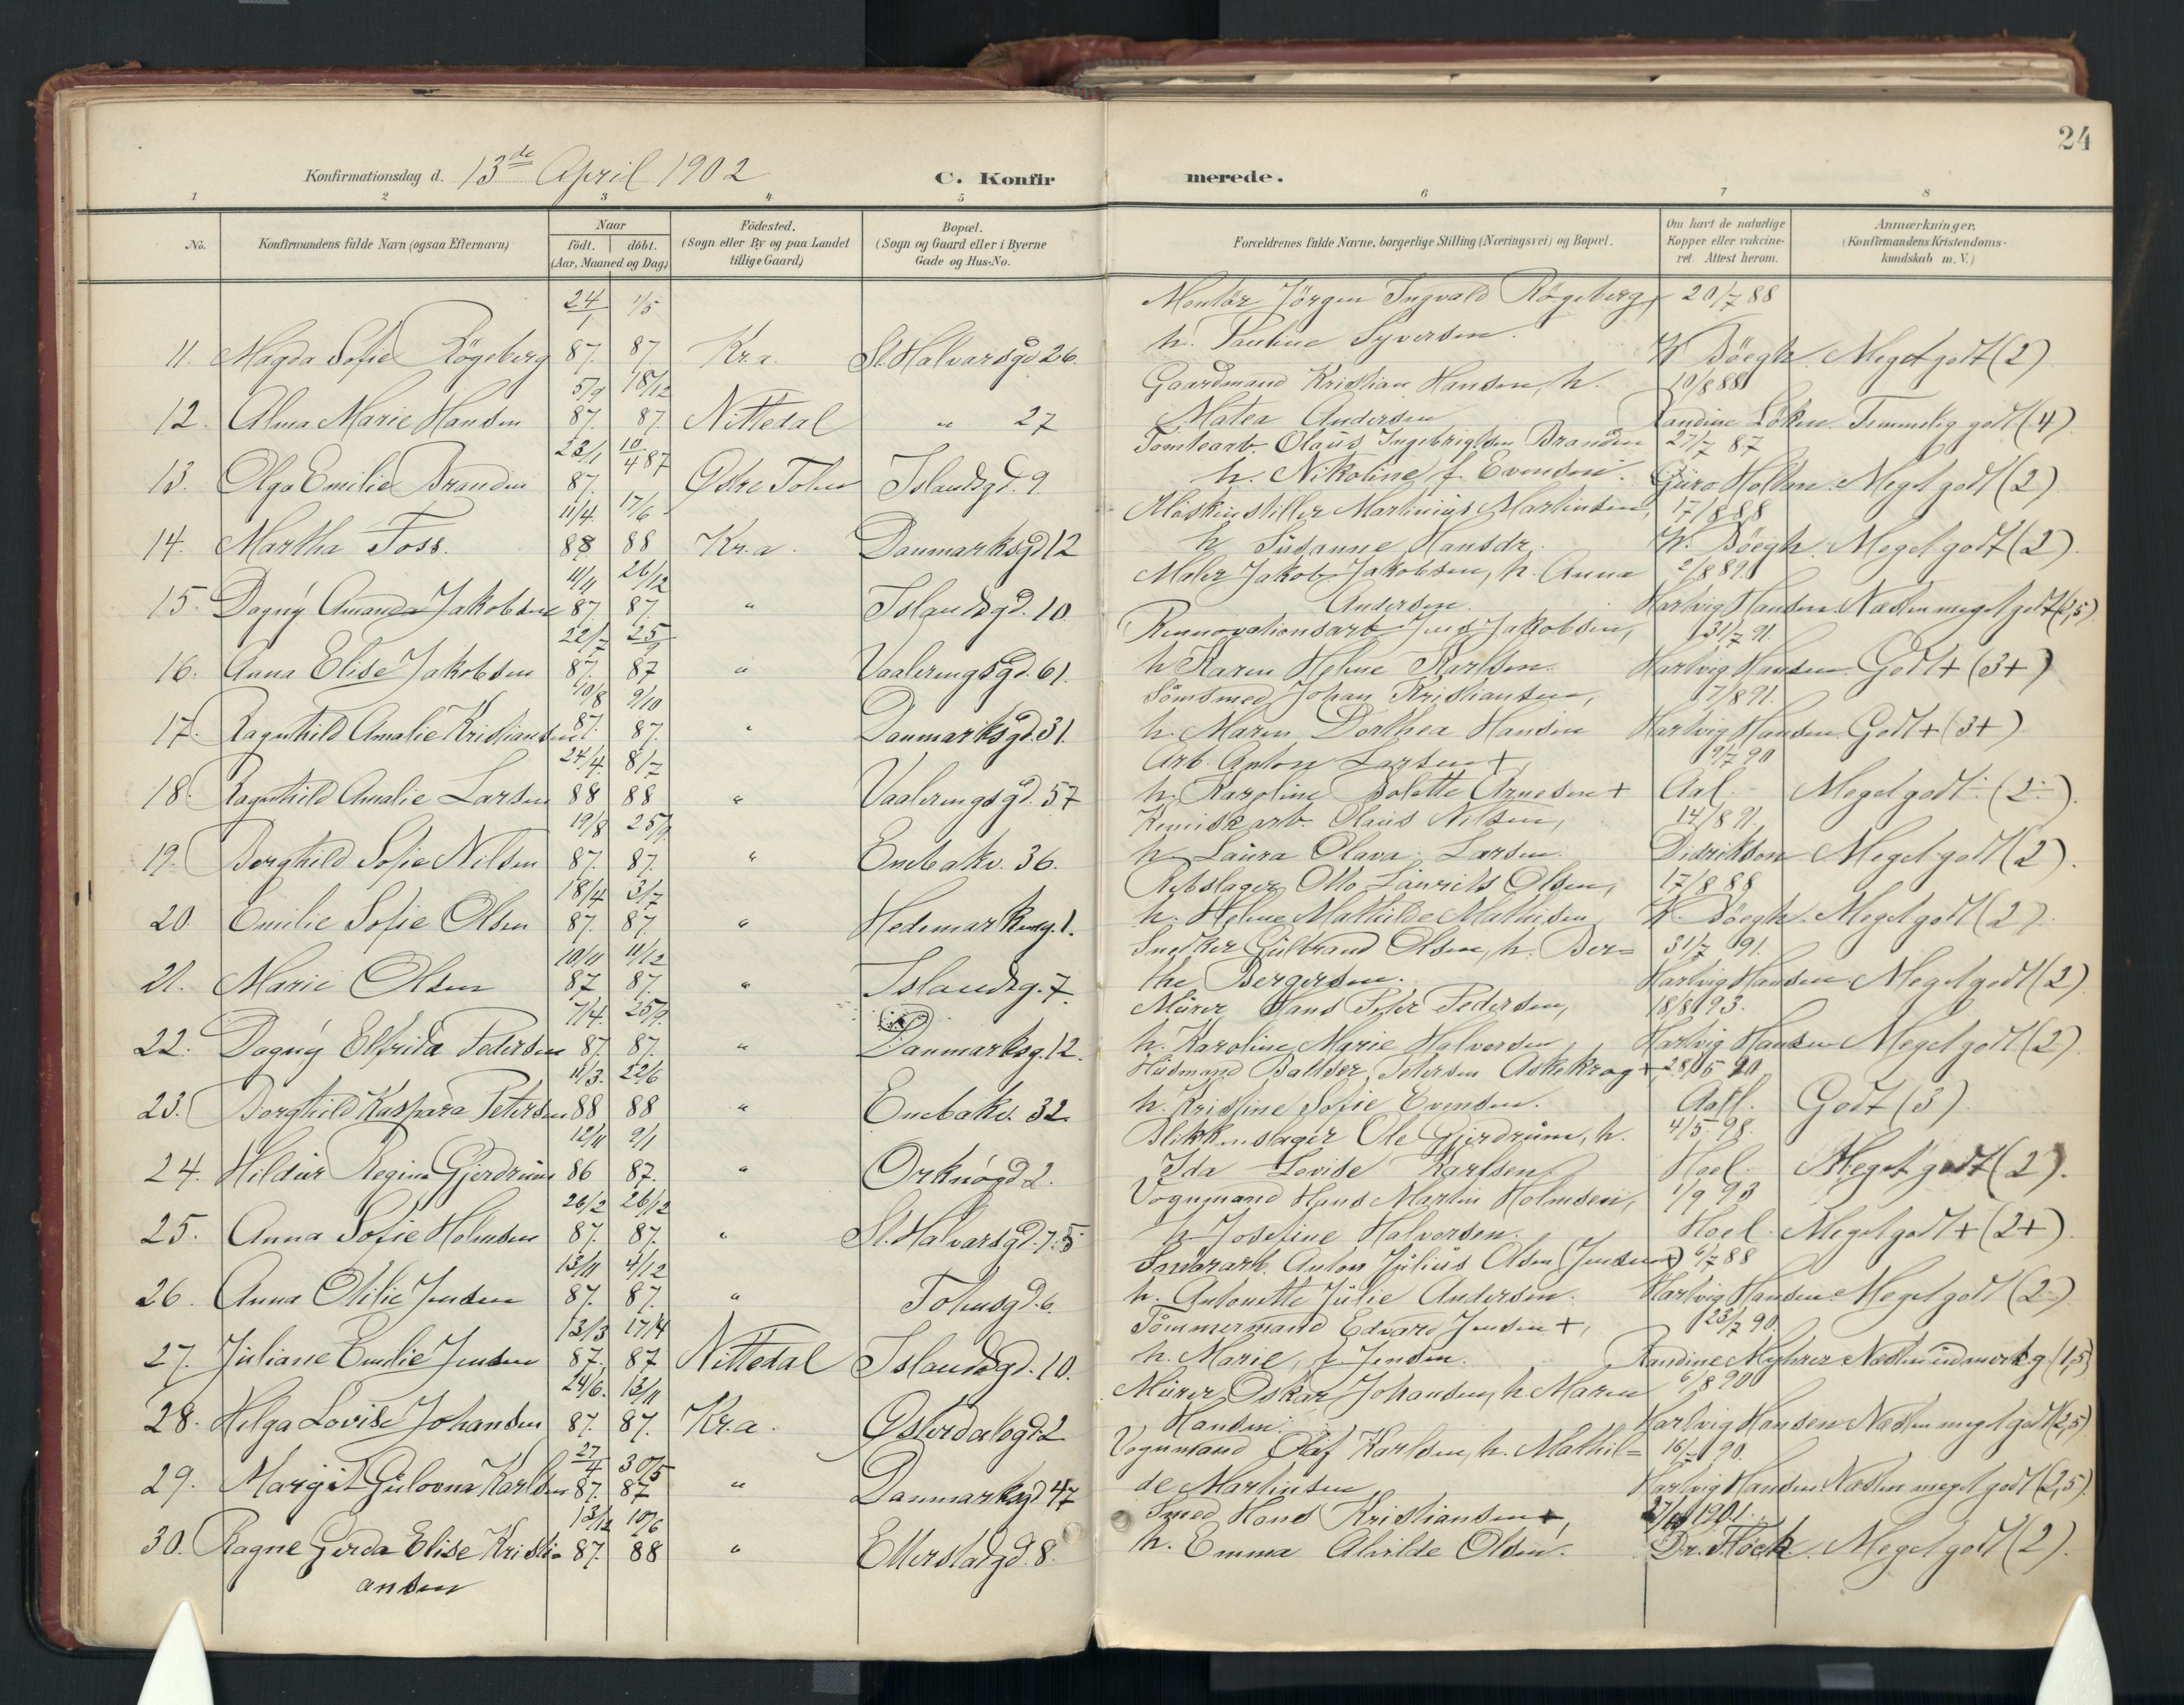 24
Konfirmationsdag d. 13de April 1902
C. Konfirmerede.
1 2 3 4 5 6 7 8
No. Konfirmandens fulde Navn (ogsaa Efternavn) Naar födt. döbt. (Aar, Maaned og Dag) Födested. (Sogn eller By og paa Landet tillige Gaard) Bopæl. (Sogn og Gaard eller i Byerne Gade og Hus-No. Forældrenes fulde Navne, borgerlige Stilling (Næringsvei) og Bopæl. Om havt de naturlige Kopper eller vakcineret. Attest herom. Anmærkninger. (Konfirmandens Kristendomskundskab m. V.)
24/1 1/5 Montör Jörgen Ingvald Rögeberg, 20/7 88
11. Magda Sofie Rögeberg 87. 87. Kr.a. St. Halvardsgd 26. h. Pauline Syversen. W. Böegh. Meget godt (2)
5/9 18/12 Gaardmand Kristian Hansen, h. 10/8 88
12. Alma Marie Hansen 87. 87. Nittedal " 27 Matea Andersen Randine Löken Temmelig godt (4)
23/1 10/4 87 Tomtearb. Olaus Ingebrigtsen Branden 27/7 87
13. Olga Emilie Branden 87. Östre Toten Islandsgd. 9. h. Nikoline f. Evensen. Guro Holden. Meget godt (2)
11/4. 17/6 Maskinstiller Martinius Martinsen, 17/8 88
14. Martha Foss. 88 88 Kr.a. Danmarksgd 12 h. Susanne Hansdr. W. Böegh. Meget godt (2).
11/11 26/12 Maler Jakob Jakobsen, h. Anna 2/8 89.
15. Dagny Amanda Jakobsen 87. 87. " Islandsgd. 10. Andersen. Hartvig Hansen. Næsten meget godt (2,5)
22/7 25/9 Rennovationsarb. Jens Jakobsen, 31/7 91.
16. Anna Elise Jakobsen 87. 87 " Vaalerengsgd. 61. h. Karen Helene Karlsen. Hartvig Hansen. Godt + (3+)
10/8 9/10 Sömsmed Johan Kristiansen, 7/8 91.
17. Ragnhild Amalie Kristiansen 87. 87. " Danmarksgd. 31. h. Maren Dorthea Hansen Hartvig Hansen. Godt + (3+).
24/4. 8/7 Arb. Anton Larsen +, 9/7 90
18. Ragnhild Amalie Larsen 88 88 " Vaalerengsgd. 57 h. Karoline Bolette Arnesen + Aal. Meget godt ÷ (2÷).
19/8 25/9. Kemisk arb. Olaus Nilsen, 14/8 91.
19. Borghild Sofie Nilsen 87. 87. " Enebakv. 36. h. Laura Olava Larsen. Didrikson Meget godt (2).
18/4 3/7 Rebslager Otto Laurits Olsen, 17/8 88
20. Emilie Sofie Olsen 87. 87. " Hedemarkensg. 1. h. Helene Mathilde Mathisen W. Böegh. Meget godt (2).
10/11 11/12 Snedker Gulbrand Olsen, h. Ber= 31/7 91.
21. Marie Olsen 87 87. " Islandsg. 7. the Bergersen. Hartvig Hansen Meget godt (2)
7/4. 25/9. Murer Hans Peter Pedersen, 18/8 93.
22. Dagny Elfrida Pedersen 87. 87. " Danmarksg. 12. h. Karoline Marie Halvorsen, Hartvig Hansen Meget godt (2).
11/3. 22/6 Husmand Baltser Petersen Askekrog + 28/5 90
23. Borghild Kaspara Petersen 88 88 " Enebakv. 32. h. Kristine Sofie Evensen. Aall. Godt (3)
12/11 9/1 Blikkenslager Ole Gjerdrum, h. 4/5 98.
24. Hildur Regine Gjerdrum 86 87. " Orknögd 2. Ida Lovise Karlsen Hoel. Meget godt (2).
26/2 26/12 Vognmand Hans Martin Holmsen, 1/9 93
25. Anna Sofie Holmsen 87. 87. " St. Halvardsgd. 75 h. Josefine Halvorsen. Hoel. Meget godt + (2+).
13/11 4/12 Anton Julius Olsen (Jensen) 6/7 88
26. Anna Otilie Jensen 87. 87. " Tolensgd. 6. h. Antonette Julie Andersen. Hartvig Hansen. Meget godt (2)
13/3 17/4 Tömmermand Edvard Jensen +, 23/7 90.
27. Juliane Emilie Jensen 87. 87 Nittedal Islandsgd. 10. h. Marie, f. Jensen. Randine Myhrer Næsten udmerk.g (1,5)
24/6. 13/11 Murer Oskar Johansen, h. Maren 6/8 90
28. Helga Lovise Johansen 87. 87. Kr.a. Österdalsgd. 2 Hansen. Hartvig Hansen Næsten meget godt (2,5)
27/4 30/5 Vognmand Olaf Karlsen, h. Mathil= 16/7 90.
29. Margit Gulovna Karlsen 87. 87 " Danmarksgd 47 de Martinsen Hartvig Hansen. Næsten meget godt (2,5).
13/12 10/6 Smed Hans Kristiansen +, 1901.
30. Ragne Gerda Elise Kristi= 87. 88 " Etterstadgd. 8. h. Emma Alvilde Olsen. Dr. Meget godt (2).
ansen